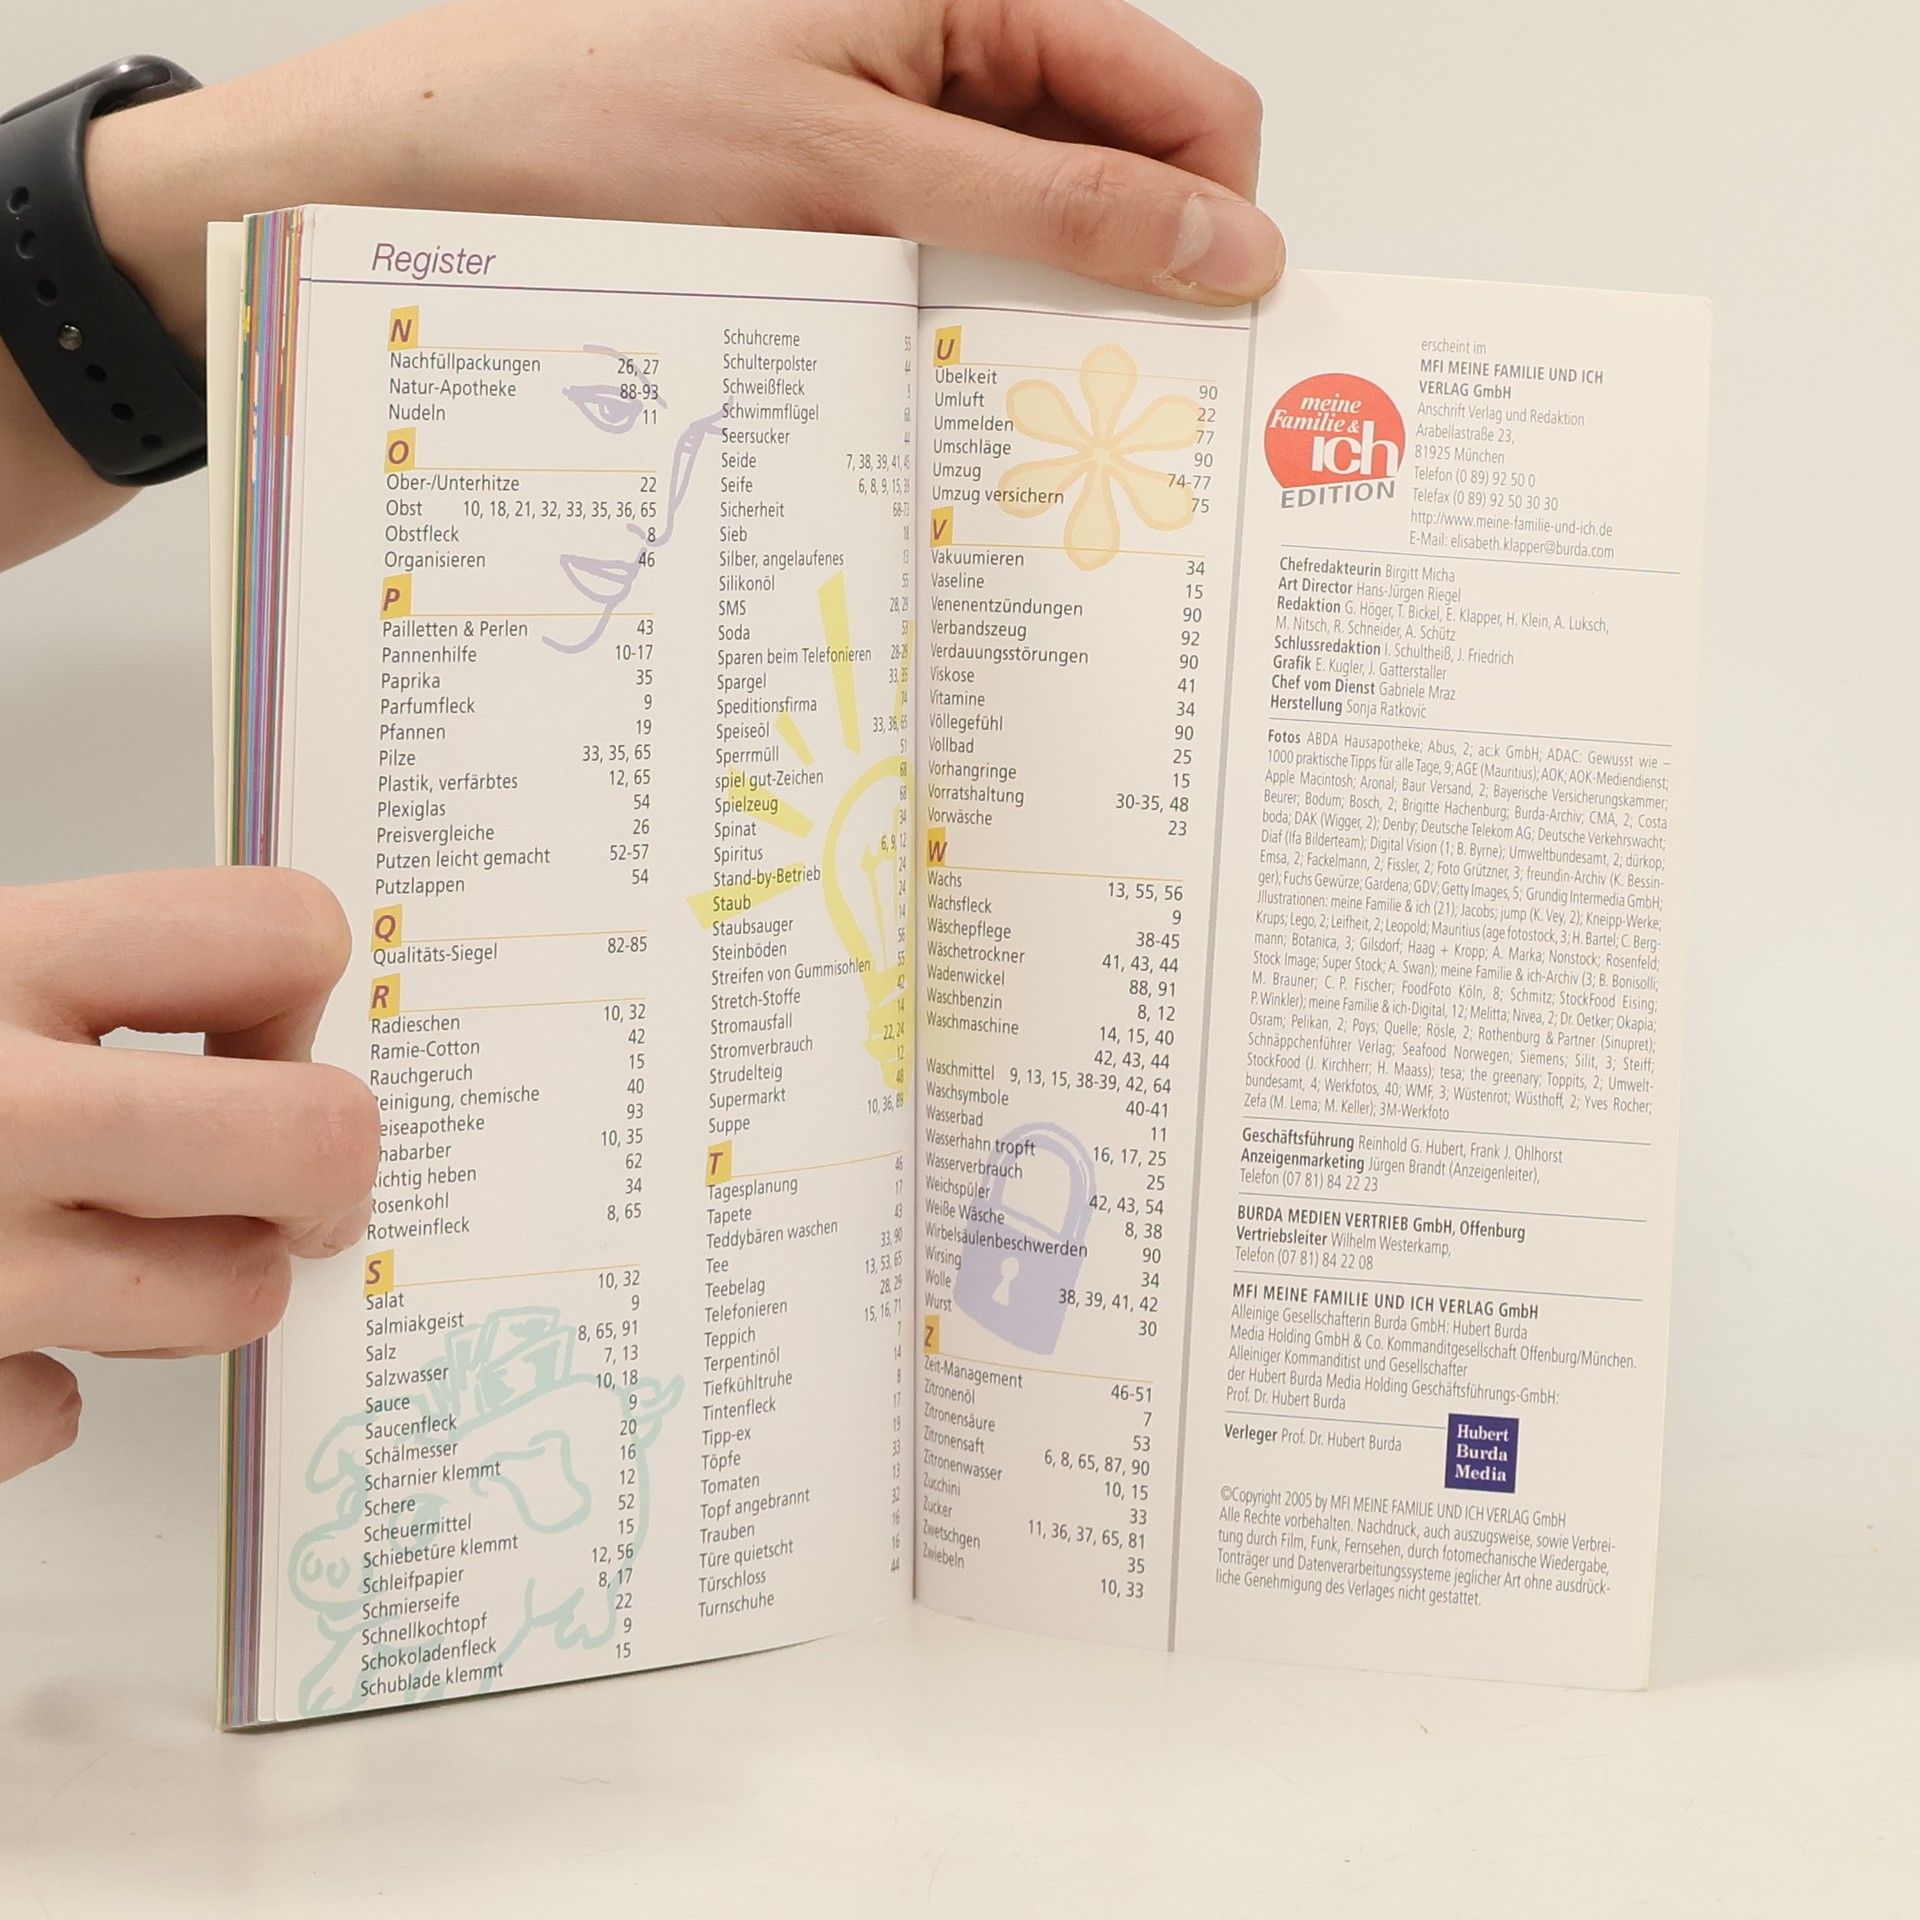 Register
N
Nachfüllpackungen 26, 27
Natur-Apotheke 88-93
Nudeln 11
O
Ober-/Unterhitze 22
Obst 10, 18, 21, 32, 33, 35, 36, 65
Obstfleck 8
Organisieren 46
P
Pailletten & Perlen 43
Pannenhilfe 10-17
Paprika 35
Parfumfleck 9
Pfannen 19
Pilze 33, 35, 65
Plastik, verfärbtes 12, 65
Plexiglas 54
Preisvergleiche 26
Putzen leicht gemacht 52-57
Putzlappen 54
Q
Qualitäts-Siegel 82-85
R
Radieschen 10, 32
Ramie-Cotton 42
Rauchgeruch 15
einigung, chemische 40
eiseapotheke 93
habarber 10, 35
ichtig heben 62
Rosenkohl 34
Rotweinfleck 8, 65
S
Salat 10, 32
Salmiakgeist 9
Salz 8, 65, 91
Salzwasser 7, 13
Sauce 10, 18
Saucenfleck 9
Schälmesser 20
Scharnier klemmt 16
Schere 12
Scheuermittel 52
Schiebetüre klemmt 15
Schleifpapier 12, 56
Schmierseife 8, 17
Schnellkochtopf 22
Schokoladenfleck 9
Schublade klemmt 15
Schuhcreme 55
Schulterpolster 44
Schweißfleck 9
Schwimmflügel 68
Seersucker 44
Seide 7, 38, 39, 41, 45
Seife 6, 8, 9, 15, 39
Sicherheit 68-73
Sieb 18
Silber, angelaufenes 13
Silikonöl 55
SMS 28, 29
Soda 53
Sparen beim Telefonieren 28-29
Spargel 33, 35
Speditionsfirma 74
Speiseöl 33, 36, 65
Sperrmüll 51
spiel gut-Zeichen 68
Spielzeug 68
Spinat 34
Spiritus 6, 9, 12
Stand-by-Betrieb 24
Staub 24
Staubsauger 14
Steinböden 56
Streifen von Gummisohlen 55
Stretch-Stoffe 42
Stromausfall 14
Stromverbrauch 22, 24
Strudelteig 12
Supermarkt 48
Suppe 10, 36, 89
T
Tagesplanung 46
Tapete 17
Teddybären waschen 43
Tee 33, 90
Teebelag 13, 53, 65
Telefonieren 28, 29
Teppich 15, 16, 71
Terpentinöl 7
Tiefkühltruhe 14
Tintenfleck 8
Tipp-ex 17
Töpfe 19
Tomaten 33
Topf angebrannt 13
Trauben 32
Türe quietscht 16
Türschloss 16
Turnschuhe 44
U
Übelkeit 90
Umluft 22
Ummelden 77
Umschläge 90
Umzug 74-77
Umzug versichern 75
V
Vakuumieren 34
Vaseline 15
Venenentzündungen 90
Verbandszeug 92
Verdauungsstörungen 90
Viskose 41
Vitamine 34
Völlegefühl 90
Vollbad 25
Vorhangringe 15
Vorratshaltung 30-35, 48
Vorwäsche 23
W
Wachs 13, 55, 56
Wachsfleck 9
Wäschepflege 38-45
Wäschetrockner 41, 43, 44
Wadenwickel 88, 91
Waschbenzin 8, 12
Waschmaschine 14, 15, 40
42, 43, 44
Waschmittel 9, 13, 15, 38-39, 42, 64
Waschsymbole 40-41
Wasserbad 11
Wasserhahn tropft 16, 17, 25
Wasserverbrauch 25
Weichspüler 42, 43, 54
Weiße Wäsche 8, 38
Wirbelsäulenbeschwerden 90
Wirsing 34
Wolle 38, 39, 41, 42
Wurst 30
Z
Zeit-Management 46-51
Zitronenöl 7
Zitronensäure 53
Zitronensaft 6, 8, 65, 87, 90
Zitronenwasser 10, 15
Zucchini 33
Zucker 11, 36, 37, 65, 81
Zwetschgen 35
Zwiebeln 10, 33
meine
Familie &
ich
EDITION
erscheint im
MFI MEINE FAMILIE UND ICH
VERLAG GmbH
Anschrift Verlag und Redaktion
Arabellastraße 23,
81925 München
Telefon (0 89) 92 50 0
Telefax (0 89) 92 50 30 30
http://www.meine-familie-und-ich.de
E-Mail: elisabeth.klapper@burda.com
Chefredakteurin Birgitt Micha
Art Director Hans-Jürgen Riegel
Redaktion G. Höger, T. Bickel, E. Klapper, H. Klein, A. Luksch,
M. Nitsch, R. Schneider, A. Schütz
Schlussredaktion I. Schultheiß, J. Friedrich
Grafik E. Kugler, J. Gatterstaller
Chef vom Dienst Gabriele Mraz
Herstellung Sonja Ratković
Fotos ABDA Hausapotheke; Abus, 2; ac:k GmbH; ADAC: Gewusst wie –
1000 praktische Tipps für alle Tage, 9; AGE (Mauritius); AOK; AOK-Mediendienst;
Apple Macintosh; Aronal; Baur Versand, 2; Bayerische Versicherungskammer;
Beurer; Bodum; Bosch, 2; Brigitte Hachenburg; Burda-Archiv; CMA, 2; Costa
boda; DAK (Wigger, 2); Denby; Deutsche Telekom AG; Deutsche Verkehrswacht;
Diaf (Ifa Bilderteam); Digital Vision (1; B. Byrne); Umweltbundesamt, 2; dürkop;
Emsa, 2; Fackelmann, 2; Fissler, 2; Foto Grützner, 3; freundin-Archiv (K. Bessin-
ger); Fuchs Gewürze; Gardena; GDV; Getty Images, 5; Grundig Intermedia GmbH;
Jllustrationen: meine Familie & ich (21); Jacobs; jump (K. Vey, 2); Kneipp-Werke;
Krups; Lego, 2; Leifheit, 2; Leopold; Mauritius (age fotostock, 3; H. Bartel; C. Berg-
mann; Botanica, 3; Gilsdorf; Haag + Kropp; A. Marka; Nonstock; Rosenfeld;
Stock Image; Super Stock; A. Swan); meine Familie & ich-Archiv (3; B. Bonisolli;
M. Brauner; C. P. Fischer; FoodFoto Köln, 8; Schmitz; StockFood Eising;
P. Winkler); meine Familie & ich-Digital, 12; Melitta; Nivea, 2; Dr. Oetker; Okapia;
Osram; Pelikan, 2; Poys; Quelle; Rösle, 2; Rothenburg & Partner (Sinupret);
Schnäppchenführer Verlag; Seafood Norwegen; Siemens; Silit, 3; Steiff;
StockFood (J. Kirchherr; H. Maass); tesa; the greenary; Toppits, 2; Umwelt-
bundesamt, 4; Werkfotos, 40; WMF, 3; Wüstenrot; Wüsthoff, 2; Yves Rocher;
Zefa (M. Lema; M. Keller); 3M-Werkfoto
Geschäftsführung Reinhold G. Hubert, Frank J. Ohlhorst
Anzeigenmarketing Jürgen Brandt (Anzeigenleiter),
Telefon (07 81) 84 22 23
BURDA MEDIEN VERTRIEB GmbH, Offenburg
Vertriebsleiter Wilhelm Westerkamp,
Telefon (07 81) 84 22 08
MFI MEINE FAMILIE UND ICH VERLAG GmbH
Alleinige Gesellschafterin Burda GmbH: Hubert Burda
Media Holding GmbH & Co. Kommanditgesellschaft Offenburg/München.
Alleiniger Kommanditist und Gesellschafter
der Hubert Burda Media Holding Geschäftsführungs-GmbH:
Prof. Dr. Hubert Burda
Verleger Prof. Dr. Hubert Burda
Hubert
Burda
Media
©Copyright 2005 by MFI MEINE FAMILIE UND ICH VERLAG GmbH
Alle Rechte vorbehalten. Nachdruck, auch auszugsweise, sowie Verbrei-
tung durch Film, Funk, Fernsehen, durch fotomechanische Wiedergabe,
Tonträger und Datenverarbeitungssysteme jeglicher Art ohne ausdrück-
liche Genehmigung des Verlages nicht gestattet.